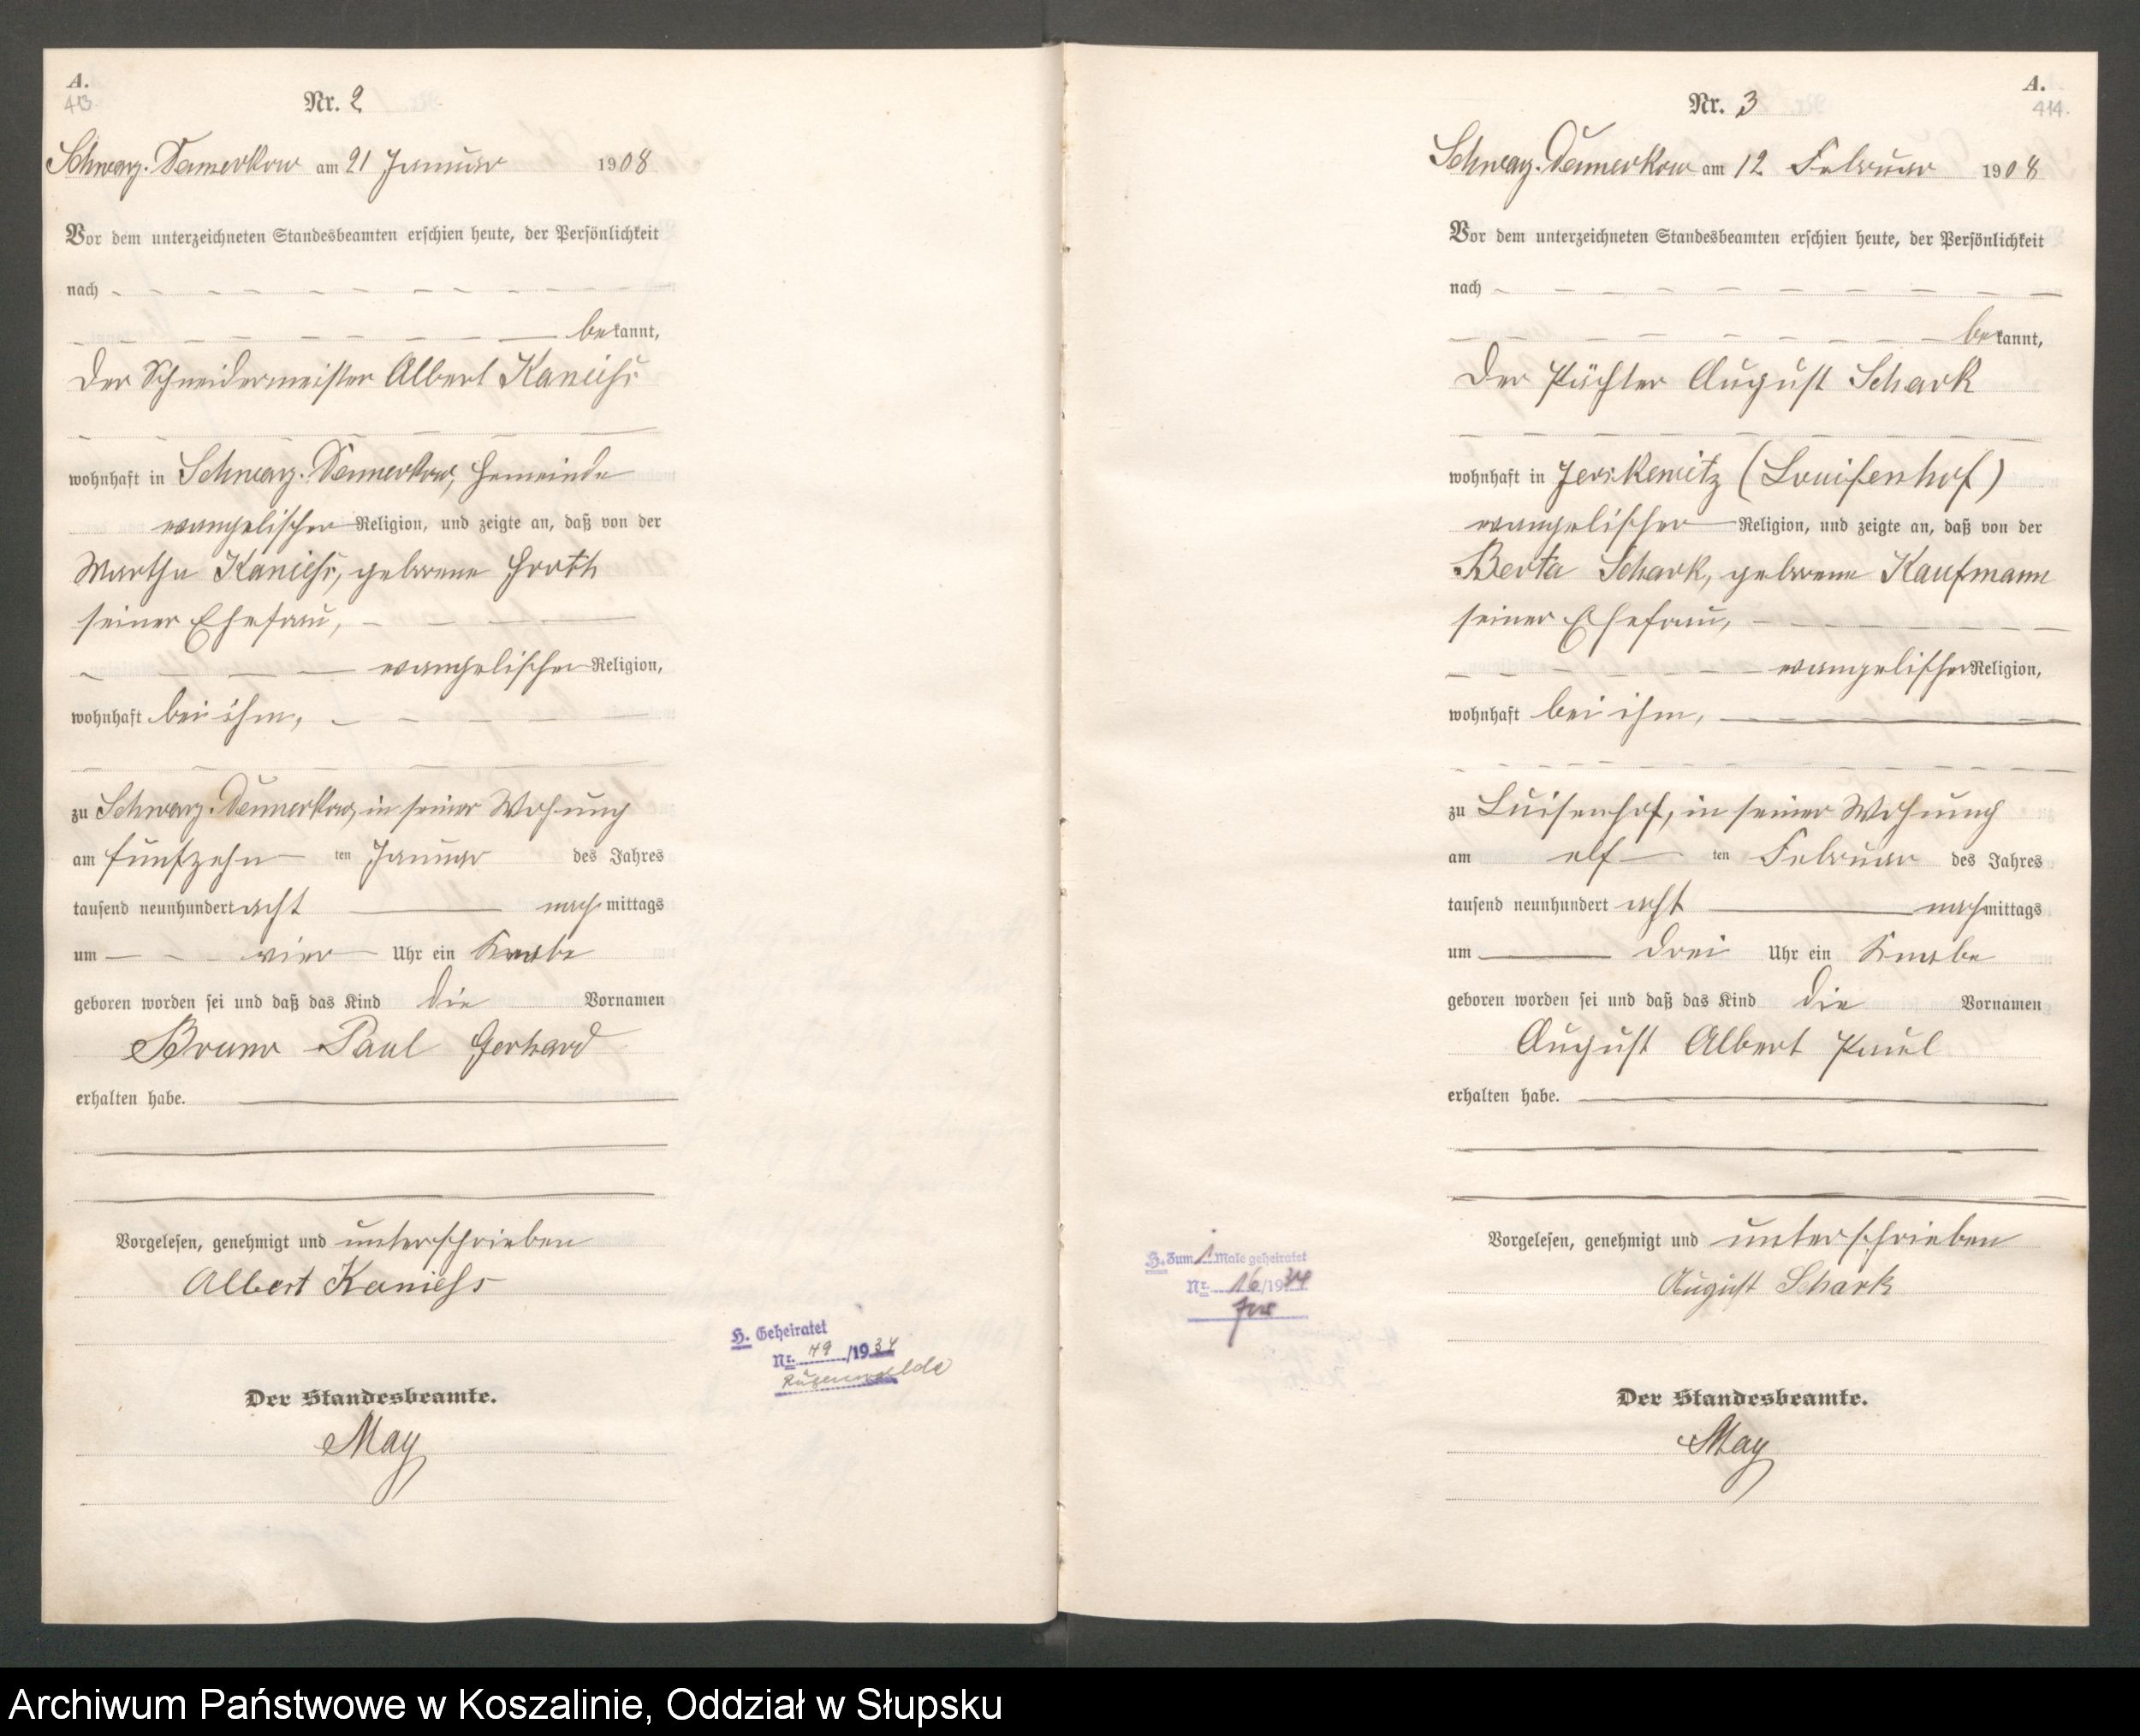 A.
413
Nr. 2
Schwarz-Damerkow am 21 Januar 1908
Vor dem unterzeichneten Standesbeamten erschien heute, der Persönlichkeit
nach
bekannt,
der Schneidermeister Albert Kaniess
wohnhaft in Schwarz-Damerkow, Gemeinde
evangelischer Religion, und zeigte an, daß von der
Martha Kaniess, geborene Groth
seiner Ehefrau,
evangelischer Religion,
wohnhaft bei ihm,
zu Schwarz-Damerkow, in seiner Wohnung
am fünfzehn ten Januar des Jahres
tausend neunhundert acht nachmittags
um vier Uhr ein Knabe
geboren worden sei und daß das Kind die Vornamen
Bruno Paul Gerhard
erhalten habe.
Vorgelesen, genehmigt und unterschrieben
Albert Kaniess
Der Standesbeamte.
May
H. Geheiratet
Nr. 49/1934
Rügenwalde
A.
414.
Nr. 3
Schwarz-Damerkow am 12 Februar 1908
Vor dem unterzeichneten Standesbeamten erschien heute, der Persönlichkeit
nach
bekannt,
der Pächter August Schark
wohnhaft in Jerskewitz (Louisenhof)
evangelischer Religion, und zeigte an, daß von der
Berta Schark, geborene Kaufmann
seiner Ehefrau,
evangelischer Religion,
wohnhaft bei ihm,
zu Luisenhof, in seiner Wohnung
am elf ten Februar des Jahres
tausend neunhundert acht nachmittags
um drei Uhr ein Knabe
geboren worden sei und daß das Kind die Vornamen
August Albert Paul
erhalten habe.
Vorgelesen, genehmigt und unterschrieben
August Schark
Der Standesbeamte.
May
H. Zum 1 Male geheiratet
Nr. 16/1934
Archiwum Państwowe w Koszalinie, Oddział w Słupsku